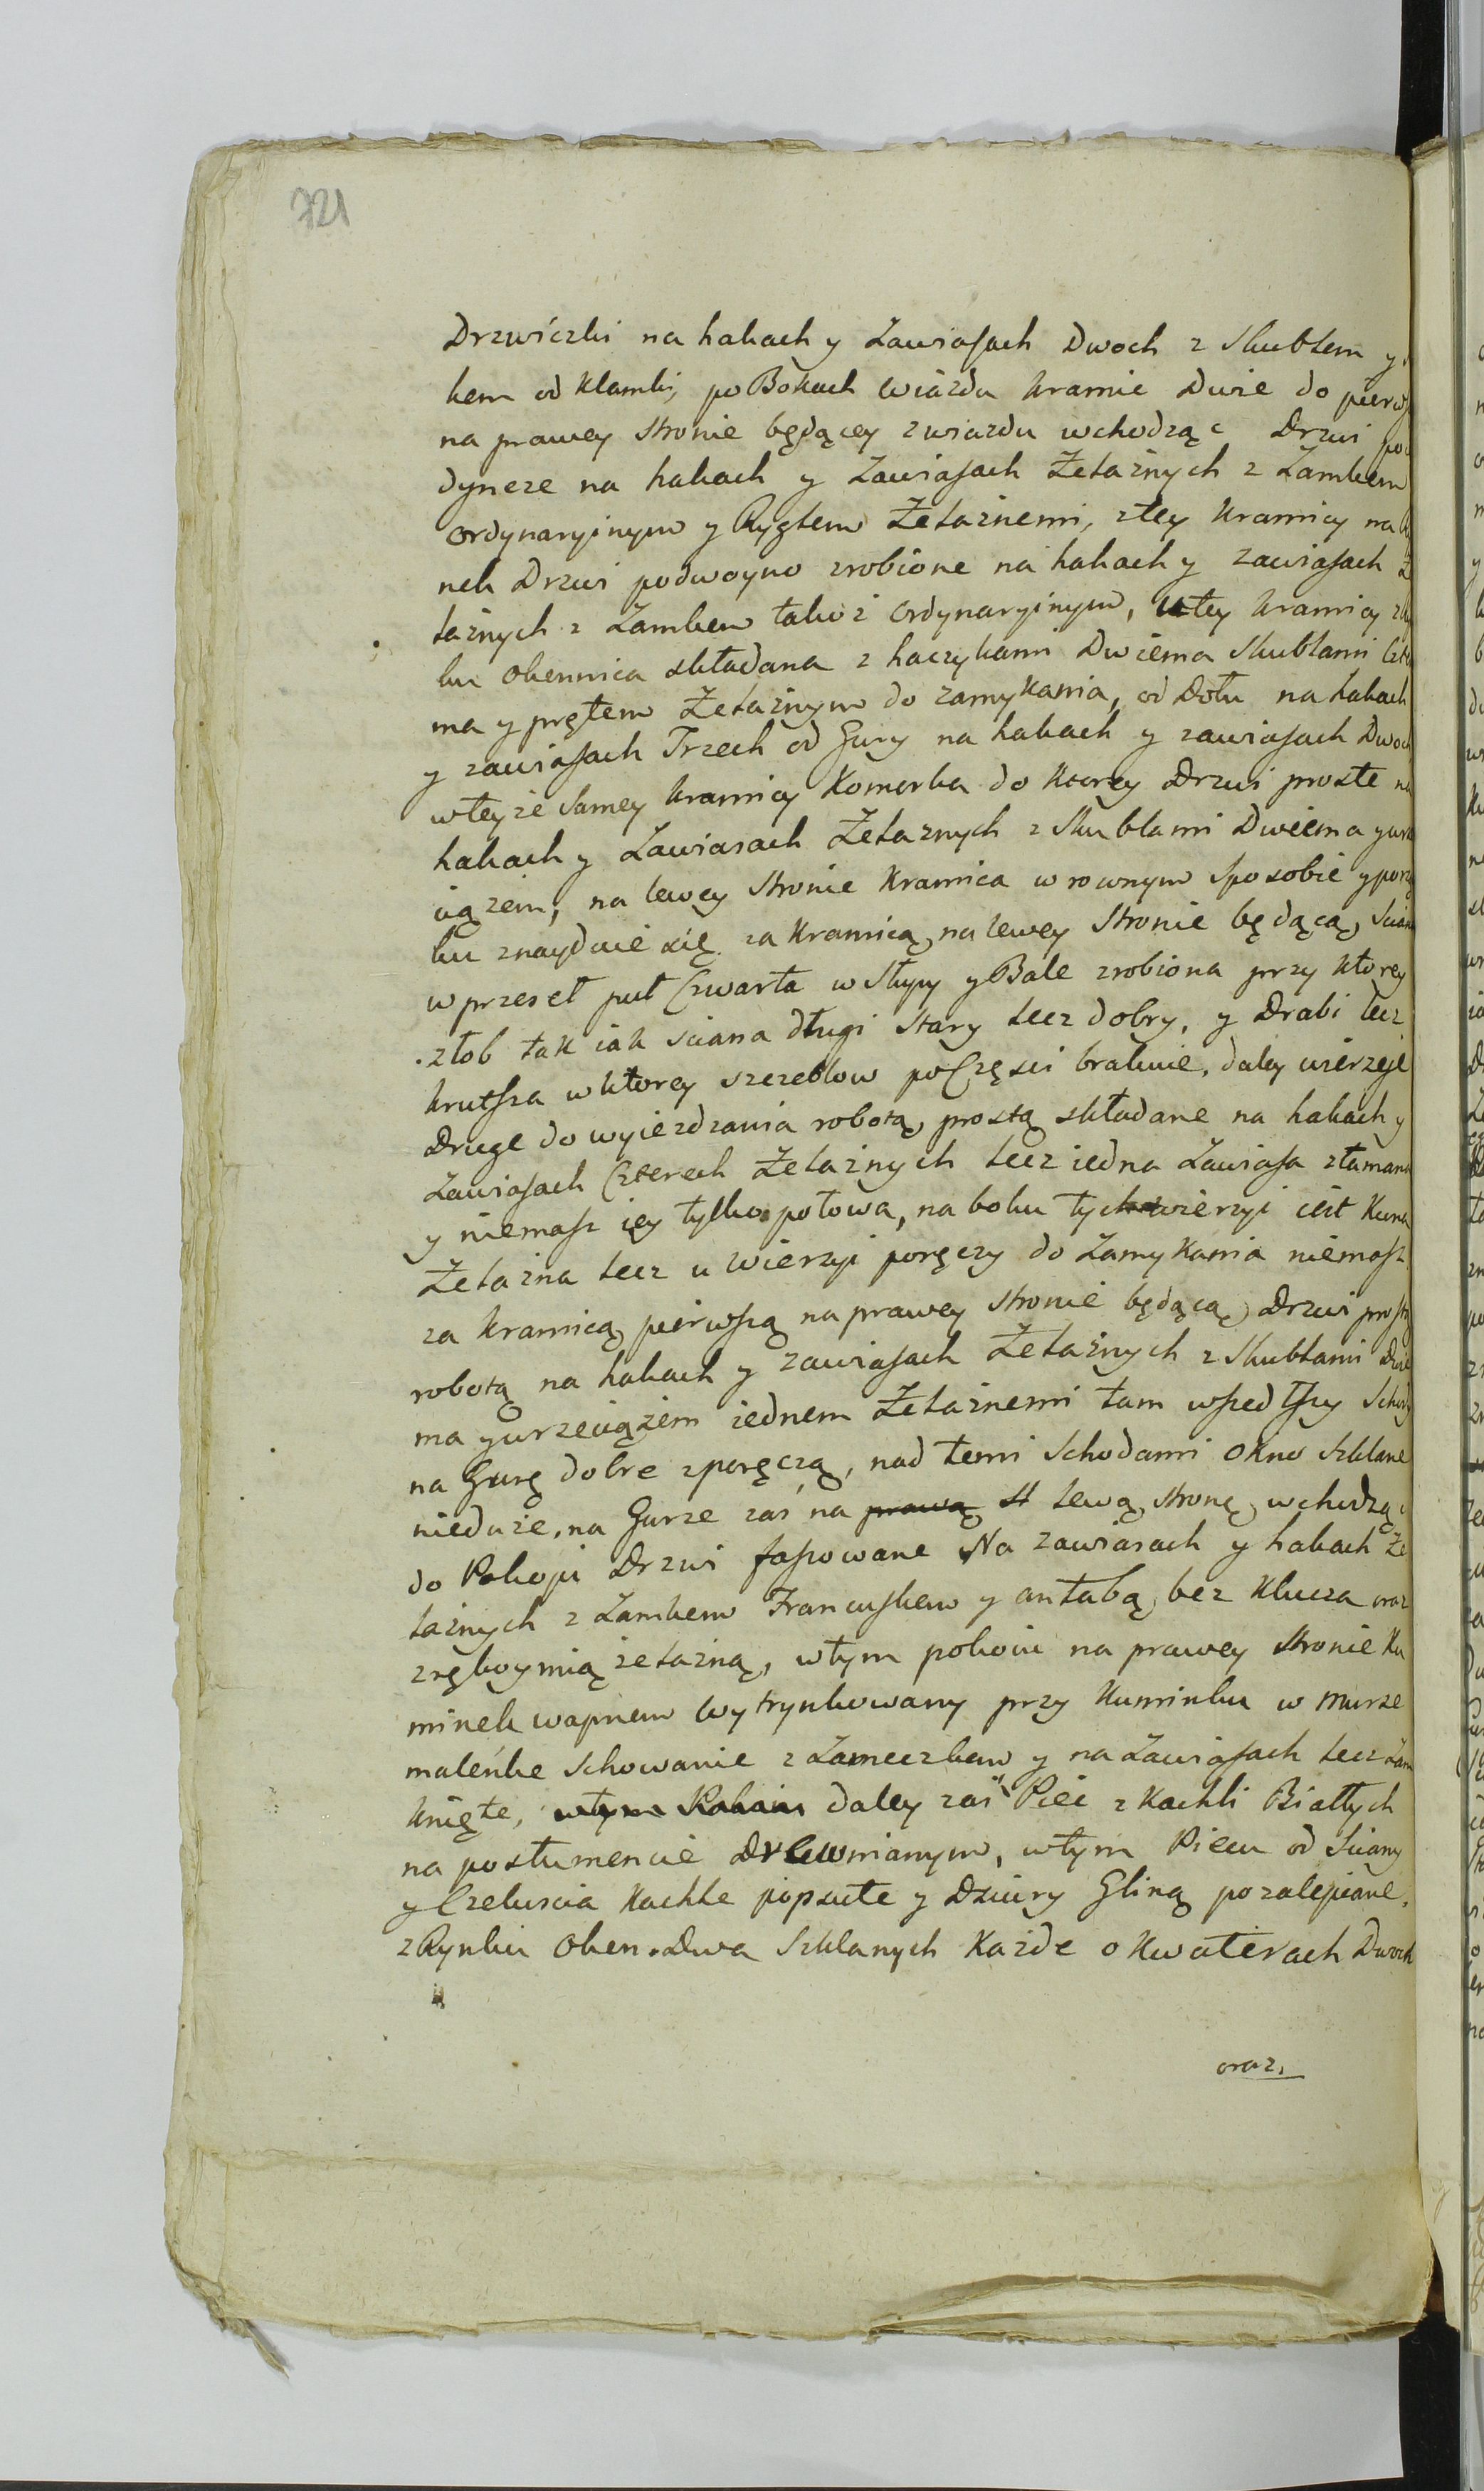 721
Drzwiczki na hakach y Zawiasach Dwoch z Skublem y
kem od Klamki, po Bokach Wiazdu kramie Dwie do pierw
na prawey stronie będącey z wiazdu wchodząc Drzwi po
dyncze na hakach y Zawiasach Żelaznych z Zamkiem
ordynaryinym y Ryglem Żelaznemi, z tey kramicy na
nek Drzwi podwoyno zrobione na hakach y zawiasach Że
laznych z Zamkem takoż ordynaryinym, u tey kramicy
ku okennica składana z haczykami Dwiema Skublami
ma y prętem Żelaznym do zamykania, od Dołu na hakach
y zawiasach Trzech od Gury na hakach y zawiasach Dwoch
w teyże samey kramicy Komorka do Ktorey Drzwi proste na
hakach y Zawiasach Żelaznych z Skublami Dwiema y wrze
ciązem, na lewey stronie kramica w rownym sposobie y porzą
ku znayduie się za Kramicą na lewey stronie będącą, sciana
w przeseł puł Czwarta w Słupy y Bale zrobiona przy Ktorey
złob tak iak sciana długi stary lecz dobry, y Drabi lecz
krutsza w ktorey szczeblow po Części brakuie, daley wierzeje
Druge do wyiezdzania robotą prostą składane na hakach y
Zawiasach Czterech Żelaznych lecz iedna Zawiasa złamana
y niemasz iey tylko połowa, na boku tych wierzyi iest Kuna
Żelazna lecz u Wierzyi poręczy do Zamykania niemasz
za kramicą pierwszą na prawey stronie będącą Drzwi prostą
robotą na hakach y zawiasach Żelaznych z Skublami Dwie
ma y wrzeciązem iednem Żelaznemi tam wszedłszy Schody
na Gurę dobre z poręczą, nad temi Schodami okno szklane
nieduże, na Gurze zaś na prawą st lewą stronę wchodząc
do Pokoju Drzwi fasowane Na zawiasach y hakach Że
laznych z Zamkem Francuskem y antabą bez Klucza oraz
z ręboymią żelazną, w tym pokoiu na prawey stronie Ku
minek wapnem wytrynkowany przy Kuminku w murze
maleńke schowanie z Zameczkem y na Zawiasach lecz Zam
knięte, w tym Pokoiu daley zaś Piec z Kachli Białłych
na postumencie Drewnianym, w tym Piecu od Sciany
y Czeluscia Kachle popsute y Dziury Gliną pozalepiane,
z Rynku Oken Dwa Szklanych Każde o Kwaterach Dwoch
oraz.